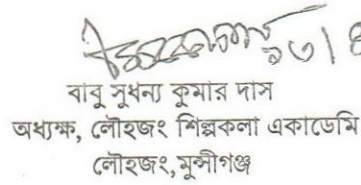 বাবু সুধন্য কুমার দাস
অধ্যক্ষ, লৌহজং শিল্পকলা একাডেমি
লৌহজং, মুন্সীগঞ্জ